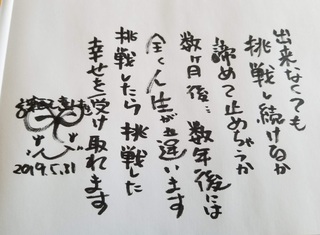 出来なくても
挑戦し続けるか
諦めて止めちゃうか
数ヶ月後…数年後には
全く人生が違います
挑戦したら挑戦した
幸せを受け取れます
2019.5.31